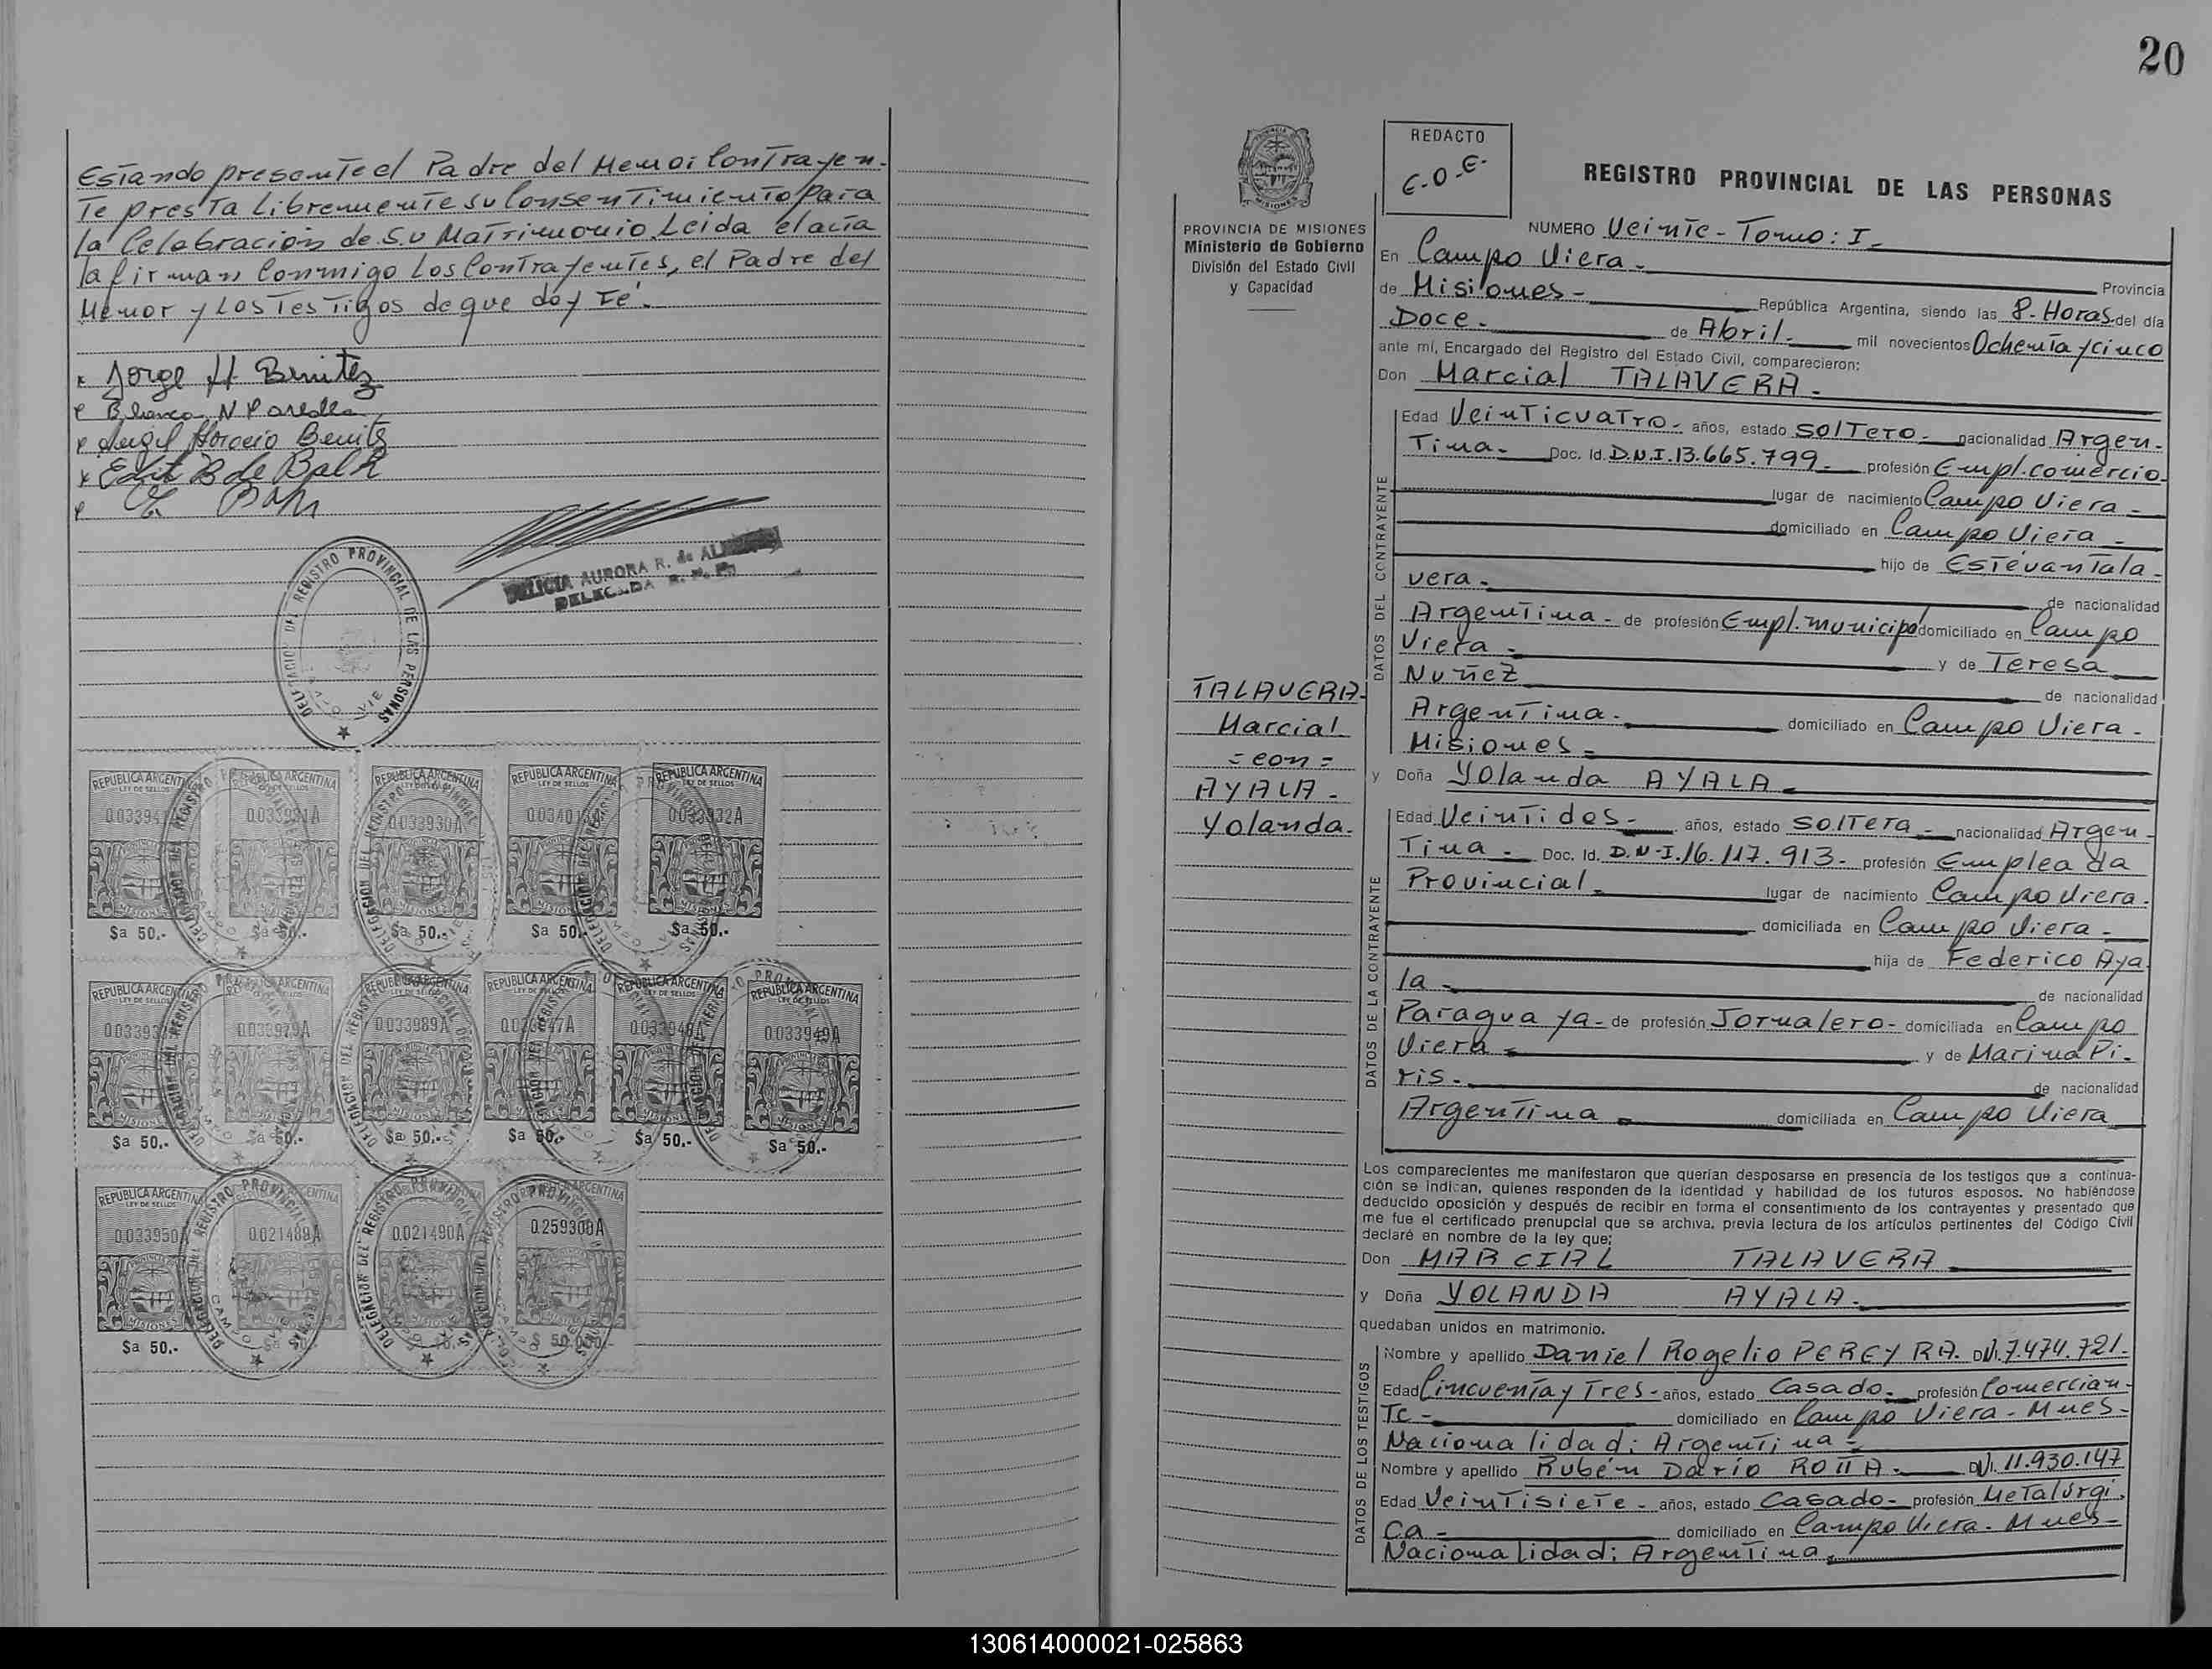 Estando presente el Padre del Menor Contrayen-
Te presta Libremente su Consentimiento para
la Celebración de su Matrimonio. Leida el acta
la firman Conmigo Los Contrayentes, el Padre del
Menor y Los Testigos de que doy Fé.
Jorge H Benitez
Blanca N Paredes
Angel Horacio Benitez
Edit B de Balk
DELICIA AURORA R. de
DELEGADA R. P. P.
DELEGACION DEL REGISTRO PROVINCIAL DE LAS PERSONAS
REPUBLICA ARGENTINA REPUBLICA ARGENTINA REPUBLICA ARGENTINA REPUBLICA ARGENTINA REPUBLICA ARGENTINA
LEY DE SELLOS LEY DE SELLOS LEY DE SELLOS
0.033930A 0.033932A
MISIONES MISIONES MISIONES MISIONES MISIONES
$a 50.- $a 50.- $a 50.- $a 50.- $a 50.-
REPUBLICA ARGENTINA REPUBLICA ARGENTINA REPUBLICA ARGENTINA REPUBLICA ARGENTINA REPUBLICA ARGENTINA REPUBLICA ARGENTINA
0.033979A 0.033989A 0.033948A 0.033949A
MISIONES MISIONES MISIONES MISIONES MISIONES MISIONES
$a 50.- $a 50.- $a 50.- $a 50.- $a 50.- $a 50.-
REPUBLICA ARGENTINA
LEY DE SELLOS
0.033950A 0.021489A 0.021490A 0.259300A
MISIONES
$a 50.-
20
PROVINCIA DE MISIONES
Ministerio de Gobierno
División del Estado Civil
y Capacidad
TALAVERA-
Marcial
= con =
AYALA -
Yolanda.
REDACTO
E.O.E.
REGISTRO PROVINCIAL DE LAS PERSONAS
NUMERO Veinte - Tomo: I -
En Campo Viera - Provincia
de Misiones - República Argentina, siendo las 8. Horas. del día
Doce - de Abril - mil novecientos Ochenta y cinco
ante mí, Encargado del Registro del Estado Civil, comparecieron:
Don Marcial TALAVERA -
DATOS DEL CONTRAYENTE
Edad Veinticuatro - años, estado Soltero - nacionalidad Argen-
Tina - Doc. Id. D.N.I. 13.665.799 - profesión Empl. comercio
lugar de nacimiento Campo Viera -
domiciliado en Campo Viera -
hijo de Estevan Tala-
vera - de nacionalidad
Argentina - de profesión Empl. municip. domiciliado en Campo
Viera - y de Teresa
Nuñez de nacionalidad
Argentina - domiciliado en Campo Viera -
Misiones -
y Doña Yolanda AYALA -
DATOS DE LA CONTRAYENTE
Edad Veintidos - años, estado Soltera - nacionalidad Argen-
Tina - Doc. Id. D.N.I. 16.117.913 - profesión Empleada
Provincial - lugar de nacimiento Campo Viera.
domiciliada en Campo Viera -
hija de Federico Aya
la - de nacionalidad
Paraguaya - de profesión Jornalero - domiciliada en Campo
Viera - y de Marina Pi-
ris - de nacionalidad
Argentina - domiciliada en Campo Viera
Los comparecientes me manifestaron que querían desposarse en presencia de los testigos que a continua-
ción se indican, quienes responden de la identidad y habilidad de los futuros esposos. No habiéndose
deducido oposición y después de recibir en forma el consentimiento de los contrayentes y presentado que
me fue el certificado prenupcial que se archiva, previa lectura de los artículos pertinentes del Código Civil
declaré en nombre de la ley que;
Don MARCIAL TALAVERA
y Doña YOLANDA AYALA -
quedaban unidos en matrimonio.
DATOS DE LOS TESTIGOS
Nombre y apellido Daniel Rogelio PEREYRA. DNI. 7.474.721-
Edad Cincuenta y Tres - años, estado Casado - profesión Comercian-
Te - domiciliado en Campo Viera - Mnes-
Nacionalidad: Argentina -
Nombre y apellido Rubén Darío ROTTA - DNI. 11.930.147
Edad Veintisiete - años, estado Casado - profesión Metalúrgi.
Ca - domiciliado en Campo Viera - Mnes-
Nacionalidad: Argentina
130614000021-025863